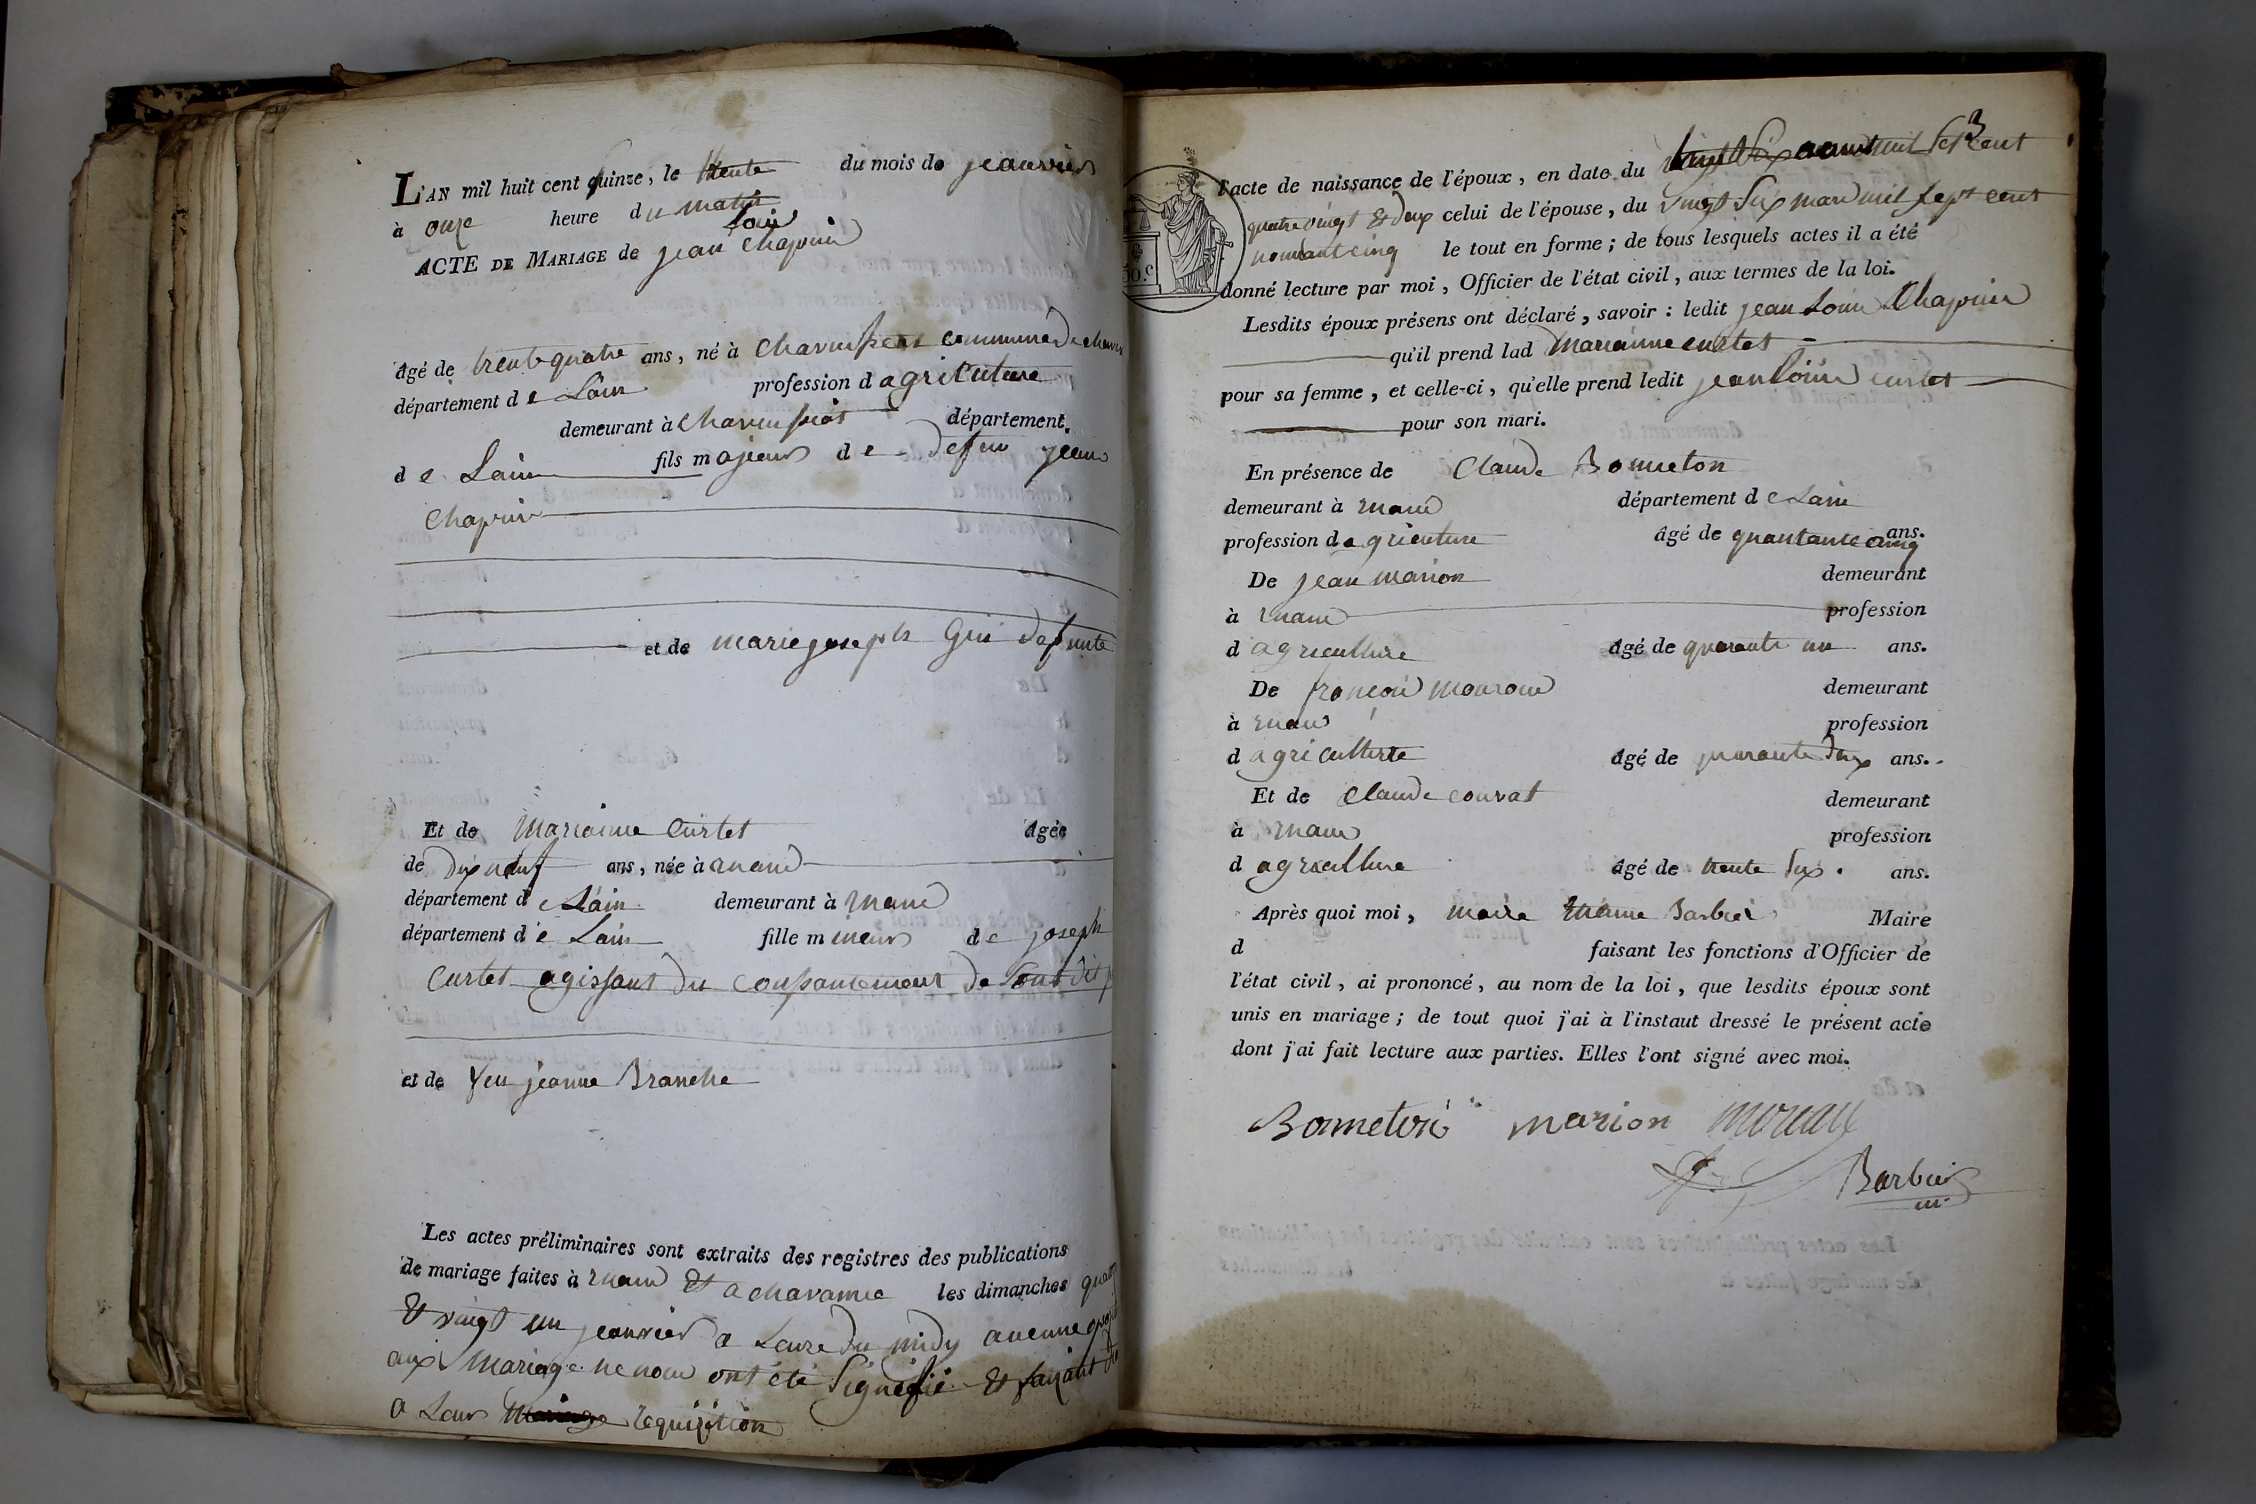 L'AN mil huit cent quinze, le trente du mois de jeanvier
à onze heure du matin
Loui
ACTE DE MARIAGE de jean Chapuis
âgé de trentequatre ans, né à commune de
département de Lain profession dagriculture
demeurant à département
de Lain fils majeur de defun jean
Chapuis
et de marie joseph Gui defunte
Et de Marianne Curtet âgée
de dix neuf ans, née à
département de Lain demeurant à
département de Lain fille mineur de joseph
Curtet agissant du consantement de
et de feu jeanne Branche
Les actes préliminaires sont extraits des registres des publications
de mariage faites à Et a les dimanches
& vingt un jeanvier a Leure du midy aucune
aux Mariage ne nous ont été Signifié & faisant
a Leur requisition
3
l'acte de naissance de l'époux, en date du mil sept cent
quatrevingt & deux celui de l'épouse, du vingt Six mars mil sept cent
le tout en forme; de tous lesquels actes il a été
50.c
donné lecture par moi, Officier de l'état civil, aux termes de la loi.
Lesdits époux présens ont déclaré, savoir : ledit jean Louis Chapuis
qu'il prend lad Marianne curtet
pour sa femme, et celle-ci, qu'elle prend ledit jean Louis curtet
pour son mari.
En présence de Claude Bonneton
demeurant à département de Lain
profession dagriculture âgé de quarantecinq ans.
De jean marion demeurant
à profession
d agriculture âgé de quarante un ans.
De françois demeurant
à profession
d agriculture âgé de quarante deux ans.
Et de Claude couvat demeurant
à profession
d agriculture âgé de trente Six ans.
Après quoi moi, maire Barbier Maire
d faisant les fonctions d'Officier de
l'état civil, ai prononcé, au nom de la loi, que lesdits époux sont
unis en mariage; de tout quoi j'ai à l'instaut dressé le présent acte
dont j'ai fait lecture aux parties. Elles l'ont signé avec moi.
Bonneton marion
Barbier